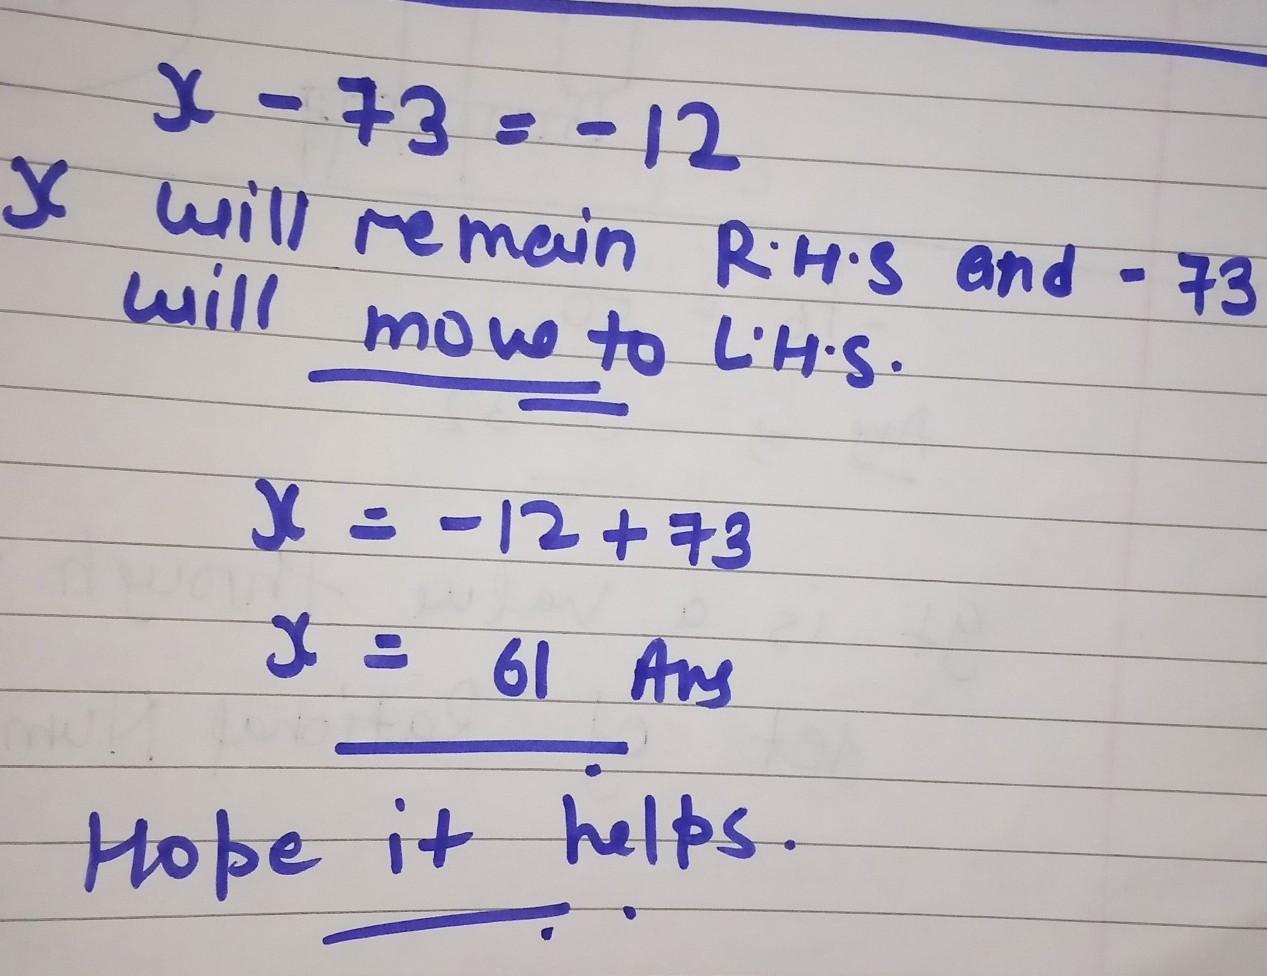 x - 73 = - 12
x will remain R.H.S and - 73
will move to L.H.S.
x = - 12 + 73
x = 61 Ans
Hope it helps.